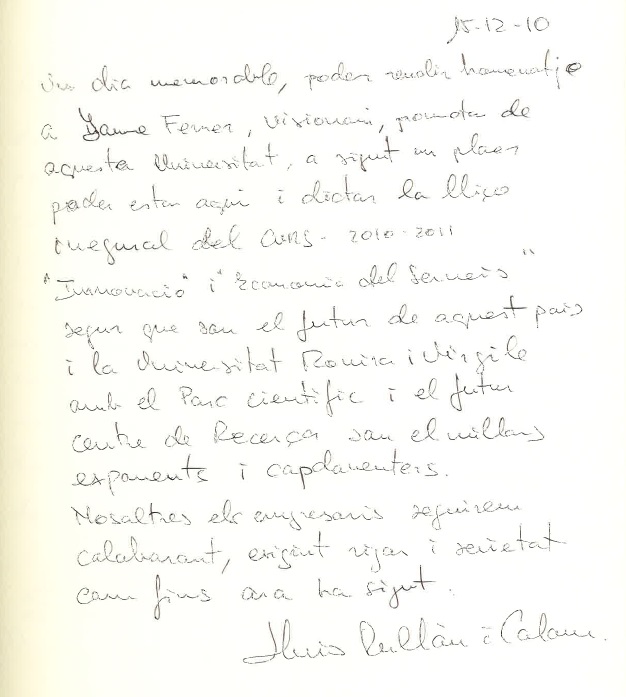 15-12-10
Un dia memorable, poder rendir homenatje
a Jaume Ferrer, visionari, promotor de
aquesta Universitat, a sigut un plaer
poder estar aqui i dictar la lliço
inegural del curs - 2010-2011
"Innovació" i "Economia del Serveis"
segur que son el futur de aquest pais
i la Universitat Rovira i Virgile
amb el Parc cientific i el futur
centre de Recerça son el millors
exponents i capdaventers.
Nosaltres els empresaris seguirem
colaborant, exigint rigor i serietat
com fins ara ha sigut.
Lluis i Colom.